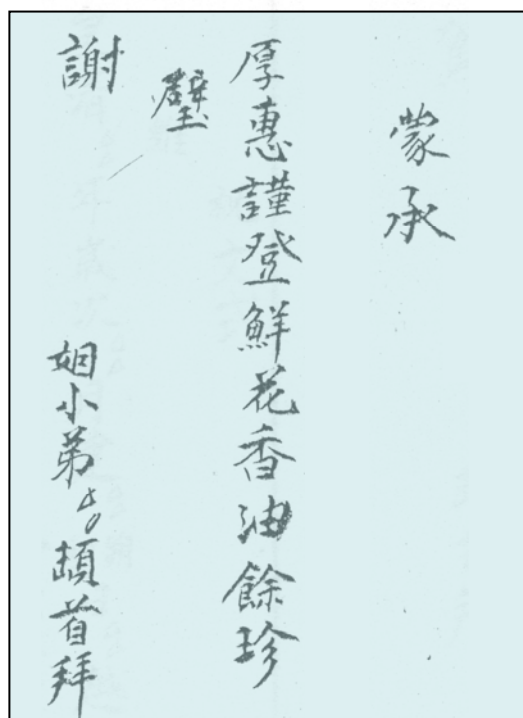 蒙承
厚惠謹登鮮花香油餘珍
璧
謝 姻小弟 頓首拜